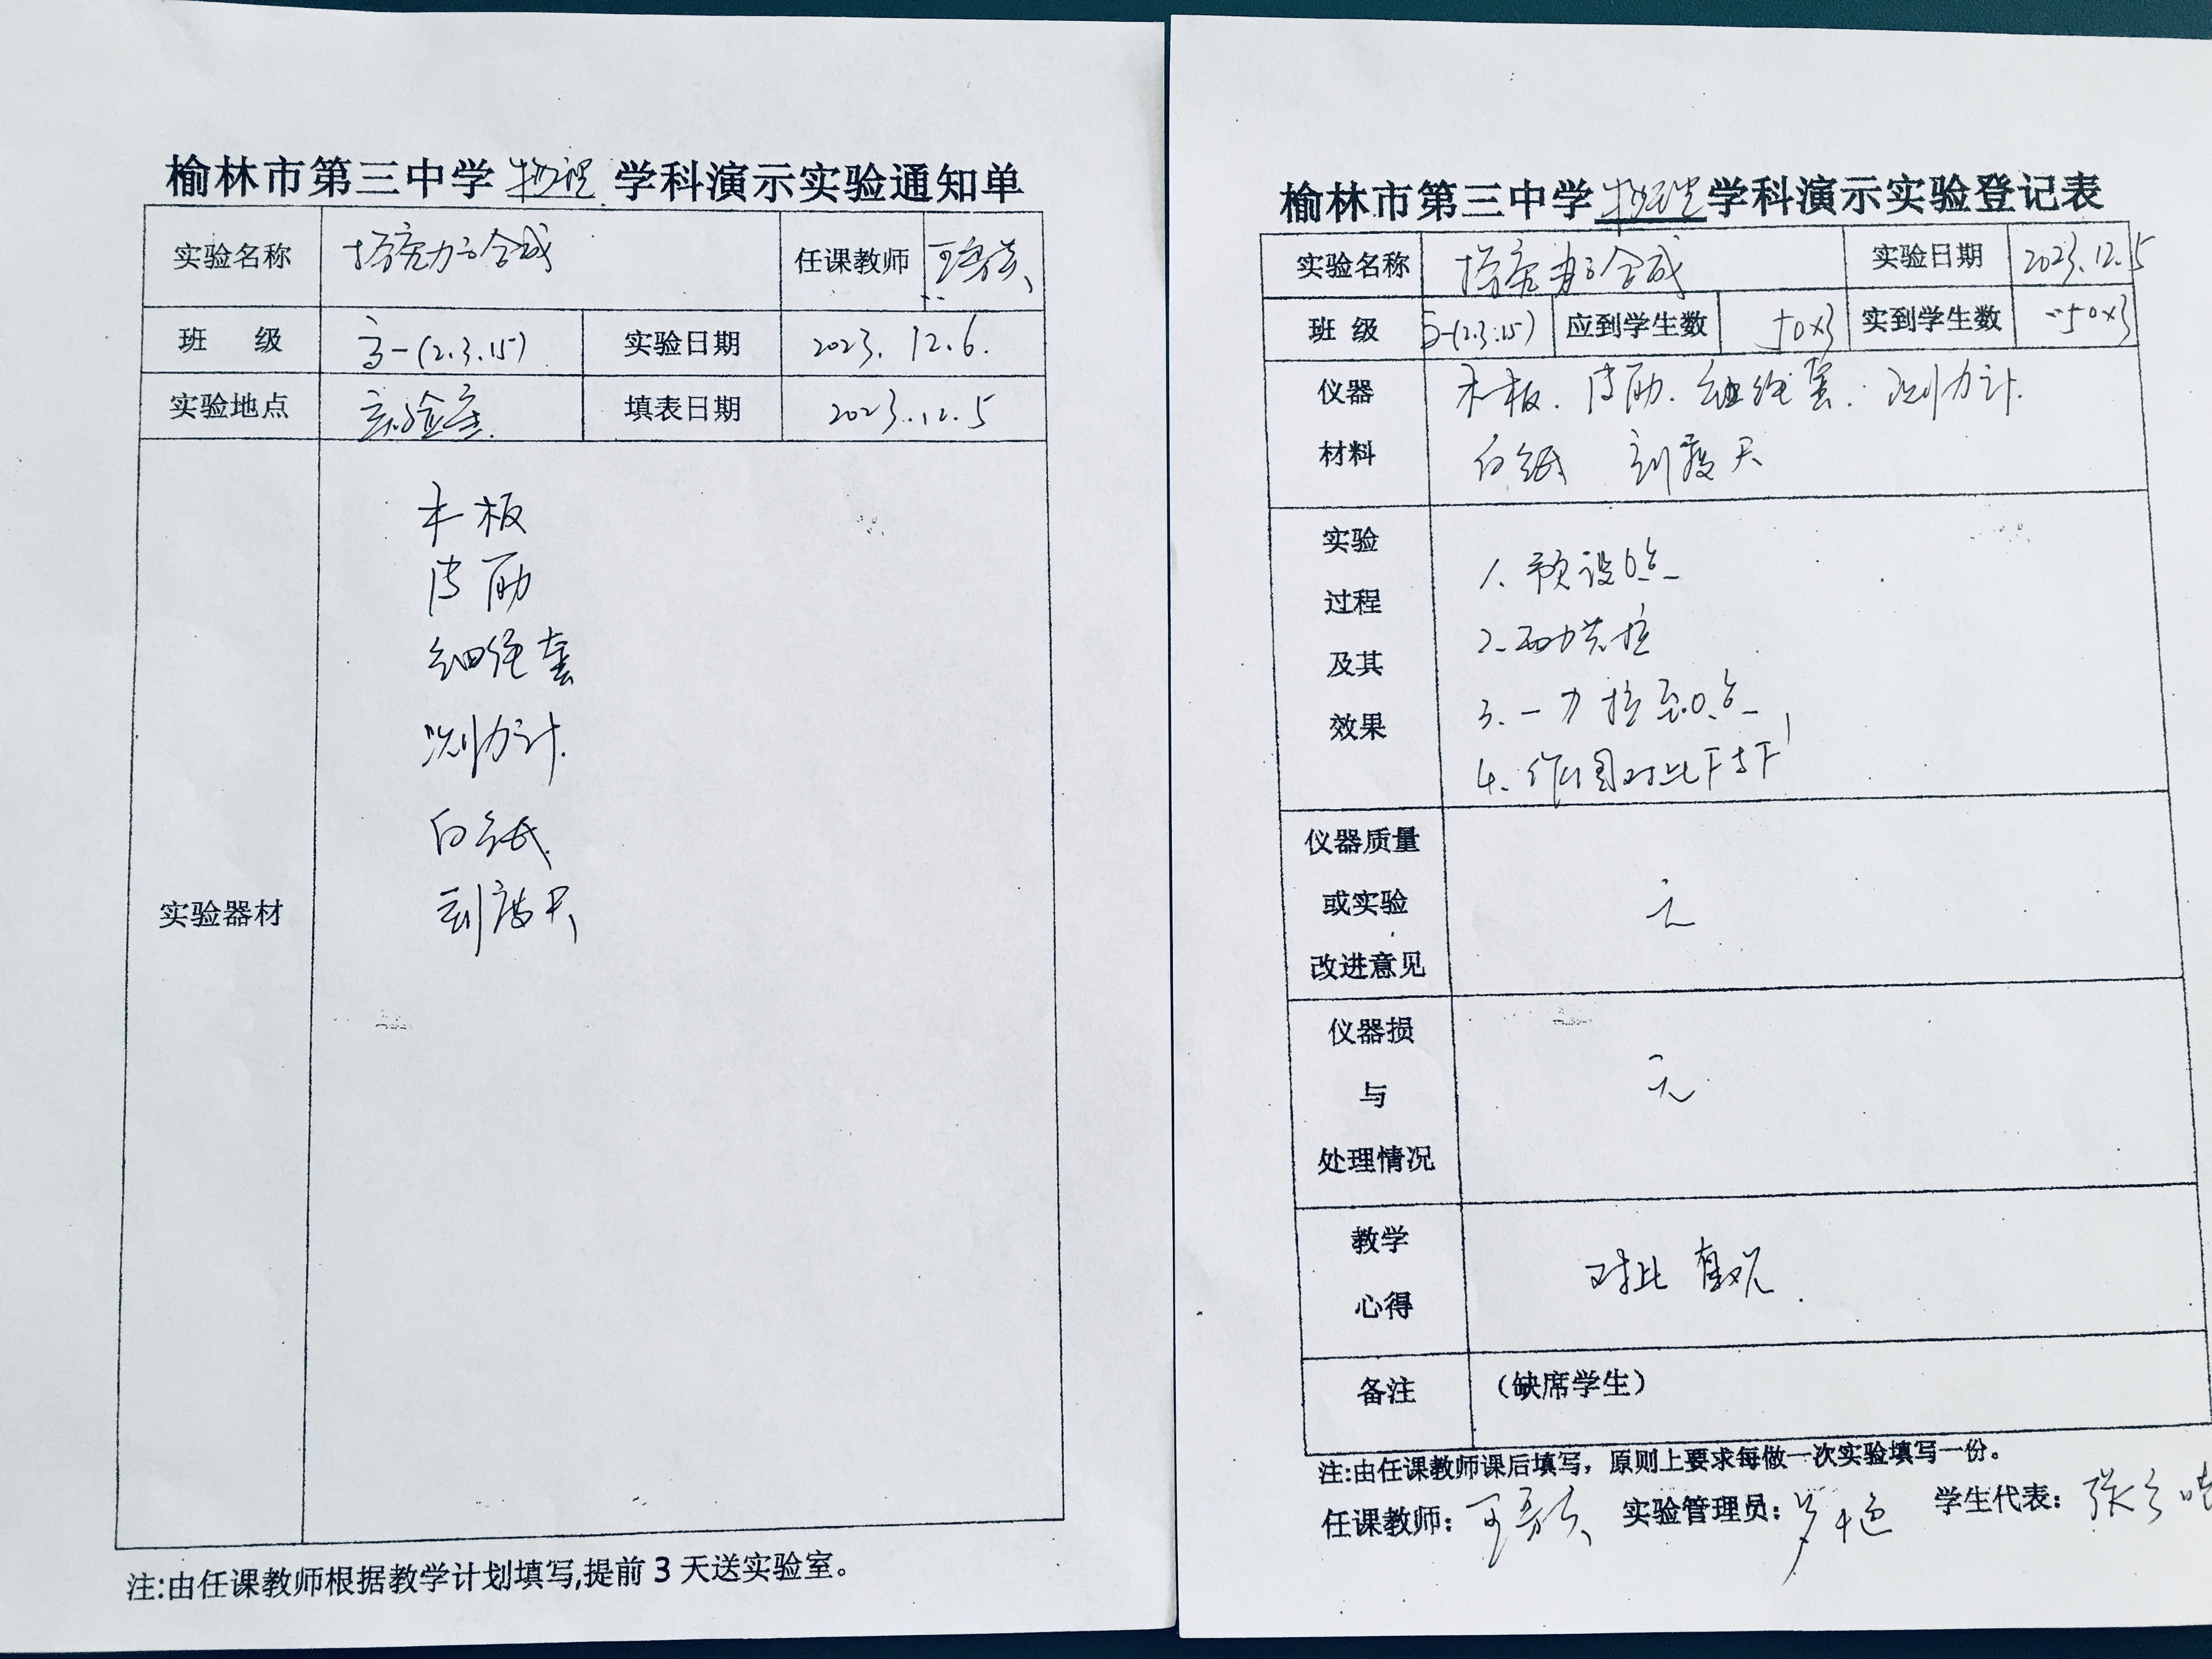 榆林市第三中学 物理 学科演示实验通知单
实验名称 探究力的合成 任课教师
班 级 高一(2.3.15) 实验日期 2023.12.6.
实验地点 实验室 填表日期 2023.12.5
实验器材
木板
皮筋
细绳套
测力计.
白纸
刻度尺
注:由任课教师根据教学计划填写,提前3天送实验室。
榆林市第三中学物理学科演示实验登记表
实验名称 探究力的合成 实验日期 2023.12.5
班 级 高一(2.3.15) 应到学生数 50×3 实到学生数 50×3
仪器 木板. 皮筋. 细绳套. 测力计.
材料 白纸 刻度尺
实验
过程
及其
效果
1. 预设O点
2. 两力共拉
3. 一力拉至O点
4. 作图对比F与F'
仪器质量
或实验 无
改进意见
仪器损
与 无
处理情况
教学
心得 对比 直观.
备注 （缺席学生）
注:由任课教师课后填写，原则上要求每做一次实验填写一份。
任课教师: 实验管理员: 学生代表: